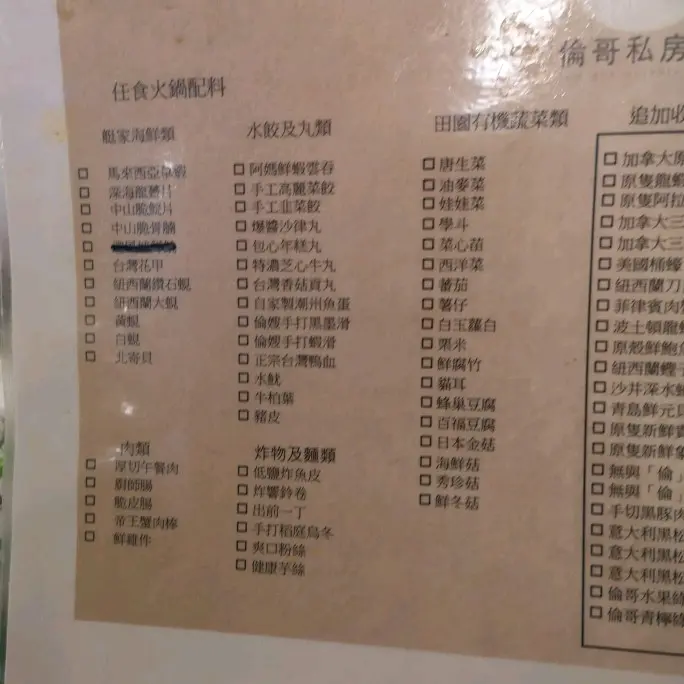 倫哥私房
任食火鍋配料
艇家海鮮類
馬來西亞草蝦
深海龍躉片
中山脆鯇片
中山脆骨腩
台灣花甲
紐西蘭鑽石蜆
紐西蘭大蜆
黃蜆
白蜆
北寄貝
肉類
厚切午餐肉
廚師腸
脆皮腸
帝王蟹肉棒
鮮雞件
水餃及丸類
阿媽鮮蝦雲吞
手工高麗菜餃
手工韭菜餃
爆醬沙律丸
包心年糕丸
特濃芝心牛丸
台灣香菇貢丸
自家製潮州魚蛋
倫嫂手打黑墨滑
倫嫂手打蝦滑
正宗台灣鴨血
水魷
牛柏葉
豬皮
炸物及麵類
低鹽炸魚皮
炸響鈴卷
出前一丁
手打稻庭烏冬
爽口粉絲
健康芋絲
田園有機蔬菜類
唐生菜
油麥菜
娃娃菜
學斗
菜心苗
西洋菜
蕃茄
薯仔
白玉蘿白
粟米
鮮腐竹
貓耳
蜂巢豆腐
百福豆腐
日本金菇
海鮮菇
秀珍菇
鮮冬菇
追加收
加拿大原
原隻龍蝦
原隻阿拉
加拿大三
加拿大三
美國桶蠔
紐西蘭刀
菲律賓肉
波士頓龍
原殼鮮鮑
紐西蘭鱆
沙井深水
青島鮮元貝
原隻新鮮
原隻新鮮
無與「倫」
無與「倫」
手切黑豚肉
意大利黑松
意大利黑松
意大利黑松
倫哥水果
倫哥青檸